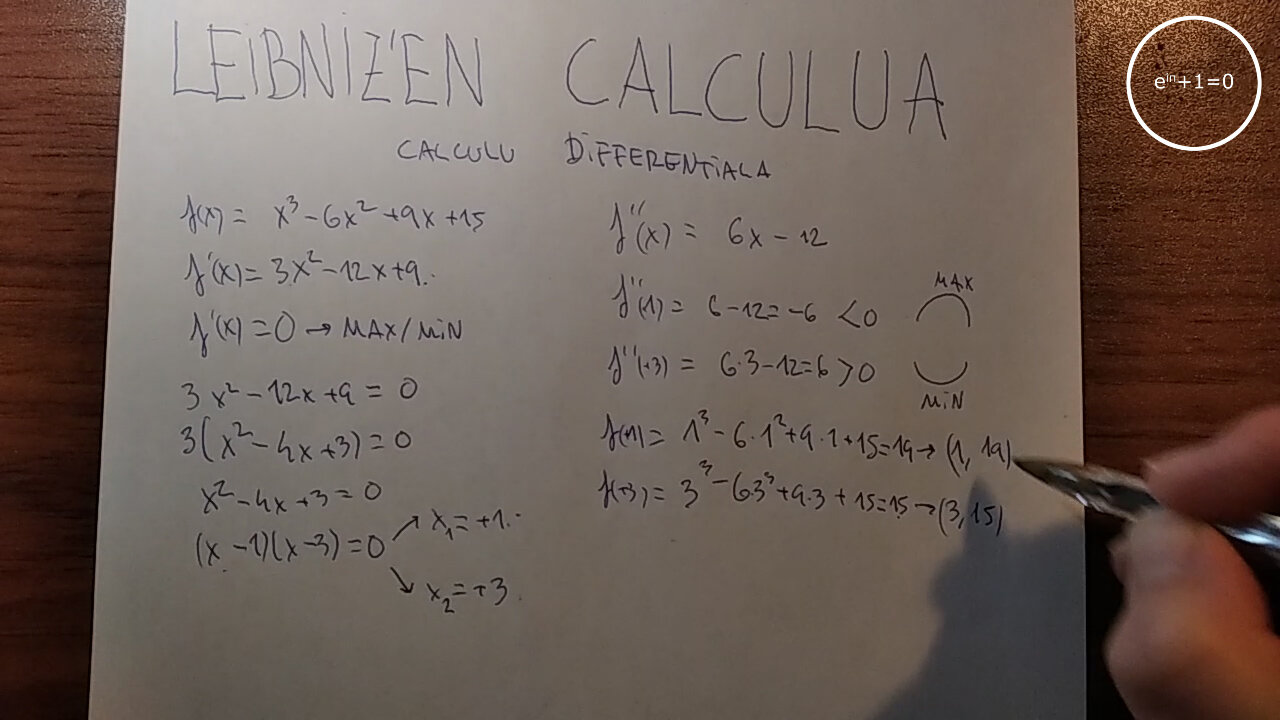 LEIBNIZ'EN CALCULUA
CALCULU DIFFERENTIALA
f(x) = x³ - 6x² + 9x + 15
f'(x) = 3x² - 12x + 9.
f'(x) = 0 → MAX/MIN
3x² - 12x + 9 = 0
3(x² - 4x + 3) = 0
x² - 4x + 3 = 0
(x - 1)(x - 3) = 0
x₁ = +1.
x₂ = +3.
f''(x) = 6x - 12
f''(1) = 6 - 12 = -6 < 0
MAX
f''(+3) = 6·3 - 12 = 6 > 0
MIN
f(+1) = 1³ - 6·1² + 9·1 + 15 = 19 → (1, 19)
f(+3) = 3³ - 6·3³ + 9·3 + 15 = 15 → (3, 15)
eⁱⁿ+1=0